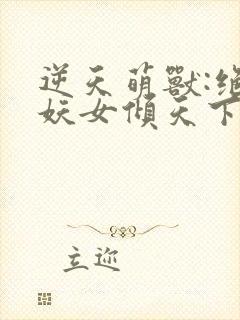 逆天萌獸:絕
妖女傾天下
立迩